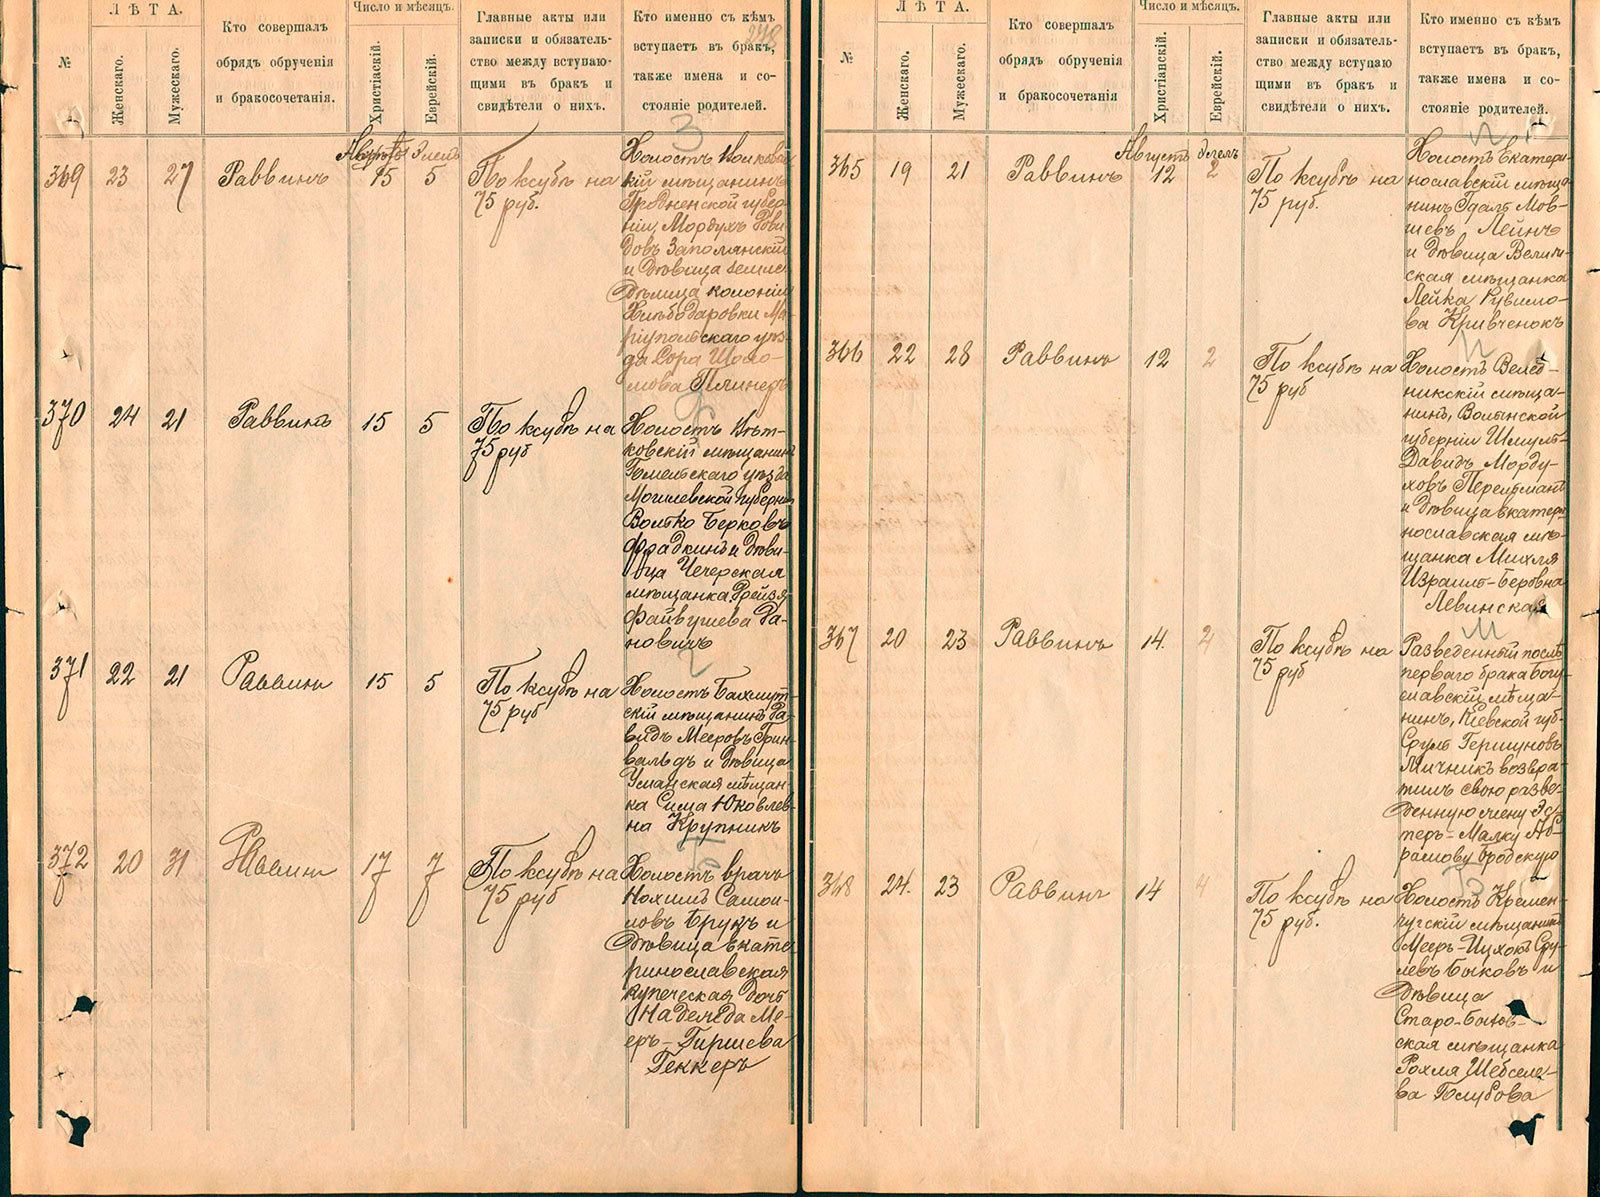 №
ЛѢТА.
Женскаго.
Мужескаго.
Кто совершалъ
обрядъ обрученія
и бракосочетанія.
Число и мѣсяцъ.
Христіаскій.
Еврейскій.
Главные акты или
записки и обязатель-
ство между вступаю-
щими въ бракъ и
свидѣтели о нихъ.
Кто именно съ кѣмъ
вступаетъ въ бракъ,
также имена и со-
стояніе родителей.
248
369 23 27 Раввинъ
Августъ Элелъ
15 5
По ксубѣ на
75 руб.
З
Холостъ Волковы-
кій мѣщанинъ
Гродненской губер-
ніи, Мордухъ Дови-
довъ Заполянскій
и дѣвица земле-
дѣлица колоніи
Хлѣбодаровки Ма-
ріупольскаго уѣз-
да Сора Шоло-
мова Плинеръ
370 24 21 Раввинъ 15 5
По ксубѣ на
75 руб
Ф
Холостъ Вѣт-
ковскій мѣщанинъ
Гомельскаго уѣзда
Могилевской губерніи
Волько Берковъ
Фрадкинъ и дѣви-
ца Чечерская
мѣщанка Фрейзя
Файвушева Ра-
новичъ
371 22 21 Раввинъ 15 5
По ксубѣ на
75 руб
Г
Холостъ Бахмут-
скій мѣщанинъ Да-
видъ Мееровъ Грин-
вальдъ и дѣвица
Уманская мѣщан-
ка Сима Юковлев-
на Крупникъ
372 20 31 Раввинъ 17 7
По ксубѣ на
75 руб
Б
Холостъ врачъ
Нохимъ Самои-
ловъ Брукъ и
дѣвица екате-
ринославская
купеческая дочь
Надежда Ме-
еръ-Гиршева
Геккеръ
№
ЛѢТА.
Женскаго.
Мужескаго.
Кто совершалъ
обрядъ обрученія
и бракосочетанія
Число и мѣсяцъ.
Христіанскій.
Еврейскій.
Главные акты или
записки и обязатель-
ство между вступаю
щими въ бракъ и
свидѣтели о нихъ.
Кто именно съ кѣмъ
вступаетъ въ бракъ,
также имена и со-
стояніе родителей.
365 19 21 Раввинъ
Августъ Элелъ
12 2
По ксубѣ на
75 руб.
Л
Холостъ Екатери-
нославскій мѣща-
нинъ Гдалъ Мов-
шевъ Лейнъ
и дѣвица Велиж-
ская мѣщанка
Лейка Рувимо-
ва Кривченокъ
366 22 28 Раввинъ 12 2
По ксубѣ на
75 руб
П
Холостъ Велед-
никскій мѣща-
нинъ, Волынской
губерніи Шмуль-
Давидъ Морду-
ховъ Перельманъ
и дѣвица екатери-
нославская мѣ-
щанка Михля
Израиль-Беровна
Левинская
367 20 23 Раввинъ 14. 4
По ксубѣ на
75 руб
М
Разведенный послѣ
перваго брака Богу-
славскій мѣща-
нинъ, Кіевской губ-
Сруль Гершуновъ
Мичникъ возвра-
тилъ свою разве-
денную жену Эс-
теръ-Малку Аб-
рамову Бродскую
368 24. 23 Раввинъ 14 4
По ксубѣ на
75 руб.
Б
Холостъ Кремен-
чугскій мѣщанинъ
Мееръ-Ицхокъ Сру-
левъ Быковъ и
дѣвица
Старо-Быхов-
ская мѣщанка
Рохля Шебселе-
ва Голубова